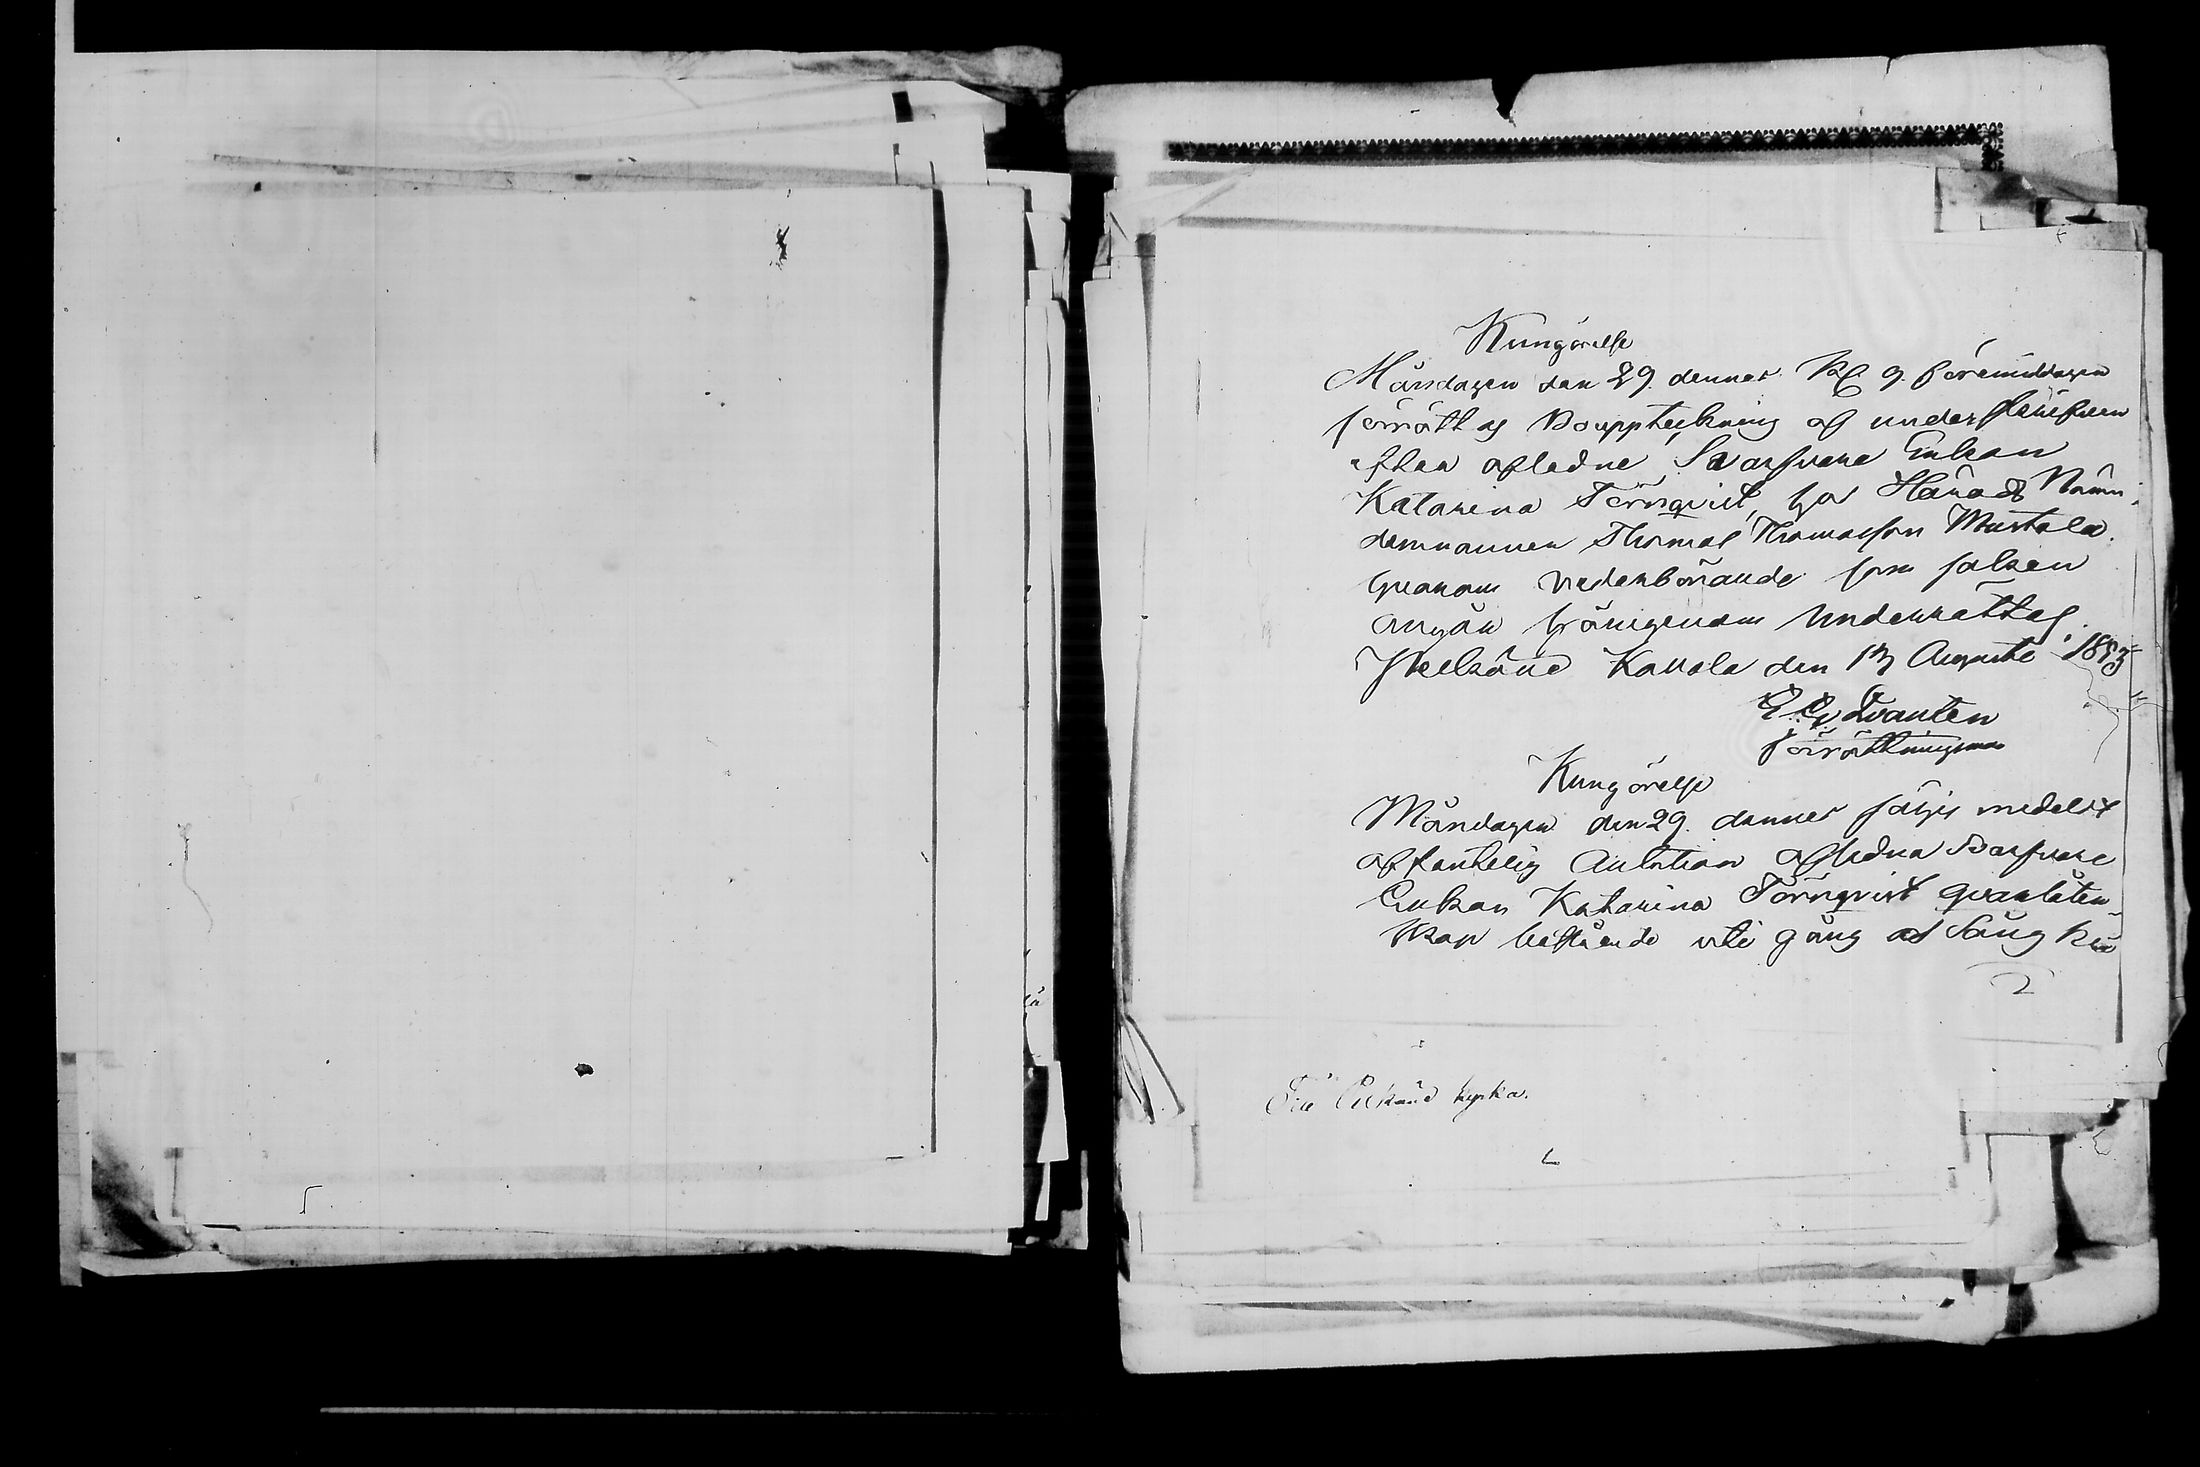 Kungörelse
Måndagen den 29 dennes Kl 9 förmiddagen
förrättas Bouppteckning af underskrifven
efter afledne Svarfvare Enkan
Katarina Törnqvist, hos Härads Nämn-
demannen Thomas Thomasson Mustala.
hvarom vederbörande som saken
angår härigenom Underrättas.
Kavala den 17 Augusti 1883
förrättningsman
Kungörelse
Måndagen den 29 dennes säljes medelst
offentelig Auktion afledna Svarfvare
Enkan Katarina Törnqvist qvarlåten-
skap bestående uti gång och Säng klä
Till kyrka.